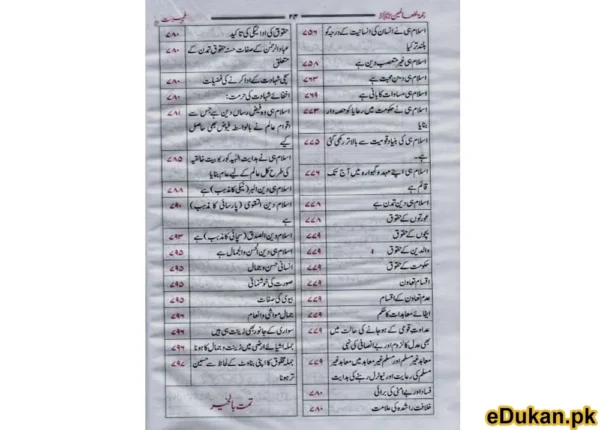 رحمۃ للعالمین ﷺ
۲۳
فہرست
اسلام ہی نے انسان کی انسانیت کے درجہ کو
بلند تر کیا
۷۵۶
اسلام ہی غیر متعصب دین ہے ۷۵۸
اسلام ہی دین محبت ہے ۷۶۳
اسلام ہی مساوات کا بانی ہے ۷۶۹
اسلام ہی نے حکومت میں رعایا کو حصہ دار
بنایا
۷۷۳
اسلام ہی کی بنیاد قومیت سے بالاتر رکھی گئی
ہے۔
۷۷۵
اسلام ہی اپنے مہد و گہوارہ میں آج تک
قائم ہے
۷۷۶
اسلام ہی دین تمدن ہے ۷۷۸
عورتوں کے حقوق ۷۷۸
بچوں کے حقوق ۷۷۹
والدین کے حقوق ۷۷۹
حکومت کے حقوق ۷۷۹
اقسام تعاون ۷۷۹
عدم تعاون کے اقسام ۷۷۹
ایفائے معاہدات کا حکم ۷۷۹
عداوت قومی کے ہو جانے کی حالت میں
بھی عدل کا لزوم اور بے انصافی کی نہی
۷۷۹
معاہد غیر مسلم اور مسلم غیر معاہد میں معاہد غیر
مسلم کی رعایت اور نیوٹرل رہنے کی ہدایت
۷۷۹
فساد اور بے امنی کی برائی ۷۸۰
خلافت راشدہ کی علامت ۷۸۰
حقوق کی ادائیگی کی تاکید ۷۸۰
عباد الرحمٰن کے صفات حسنہ حقوق تمدن کے
متعلق
۷۸۰
سچی شہادت کے ادا کرنے کی فضیلت ۷۸۰
اخفائے شہادت کی حرمت: ۷۸۰
اسلام ہی وہ فیض رساں دین ہے جس سے
اقوام عالم نے بالواسطہ فیض بھی حاصل
کیے
۷۸۱
اسلام ہی نے ہدایت الٰہیہ کو ربوبیت خالقیہ
کی طرح کل عالم کے لیے عام بنایا
۷۸۵
اسلام ہی دین البر (نیکی کا مذہب) ہے ۷۸۸
اسلام دین التقویٰ (پارسائی کا مذہب)
ہے
۷۹۰
اسلام دین الصدق (سچائی کا مذہب) ہے ۷۹۳
اسلام ہی دین الحسن والجمال ہے ۷۹۵
انسانی حسن و جمال ۷۹۵
صورت کی خوشنمائی ۷۹۵
بیوی کی صفات ۷۹۵
جمال مواشی و انعام ۷۹۶
سواری کے جانور بھی زینت ہی ہیں ۷۹۶
جملہ اشیائے ارضی میں زینت و جمال کا ہونا ۷۹۶
جملہ مخلوق کا اپنی بناوٹ کے لحاظ سے حسین
تر ہونا
۷۹۷
تمت بالخیر
eDukan.pk